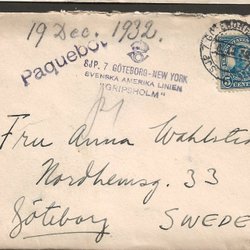 19 Dec. 1932.
Paquebot
SJP. 7 GÖTEBORG-NEW YORK
SVENSKA AMERIKA LINIEN
"GRIPSHOLM"
Fru Anna Wahlstr
Nordhemsg. 33
Göteborg SWEDE